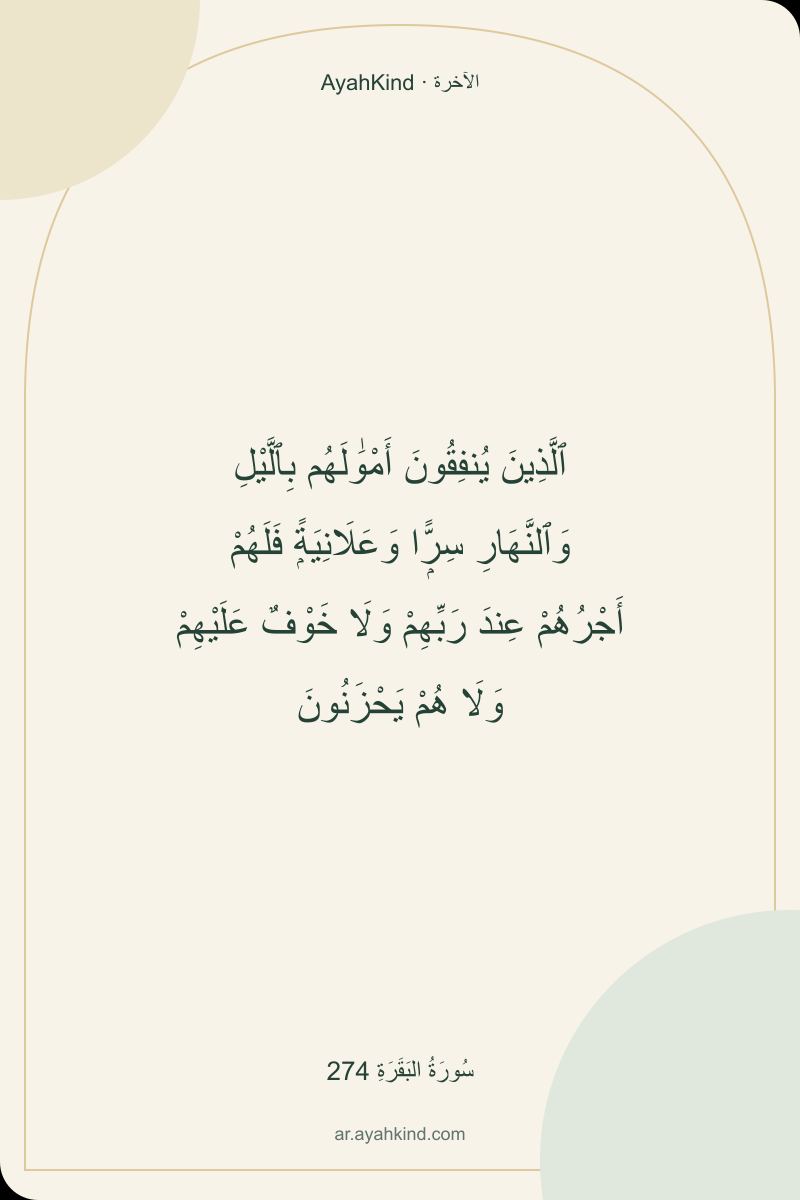 AyahKind · الآخرة
ٱلَّذِينَ يُنفِقُونَ أَمْوَٰلَهُم بِٱلَّيْلِ
وَٱلنَّهَارِ سِرًّۭا وَعَلَانِيَةًۭ فَلَهُمْ
أَجْرُهُمْ عِندَ رَبِّهِمْ وَلَا خَوْفٌ عَلَيْهِمْ
وَلَا هُمْ يَحْزَنُونَ
سُورَةُ البَقَرَةِ 274
ar.ayahkind.com